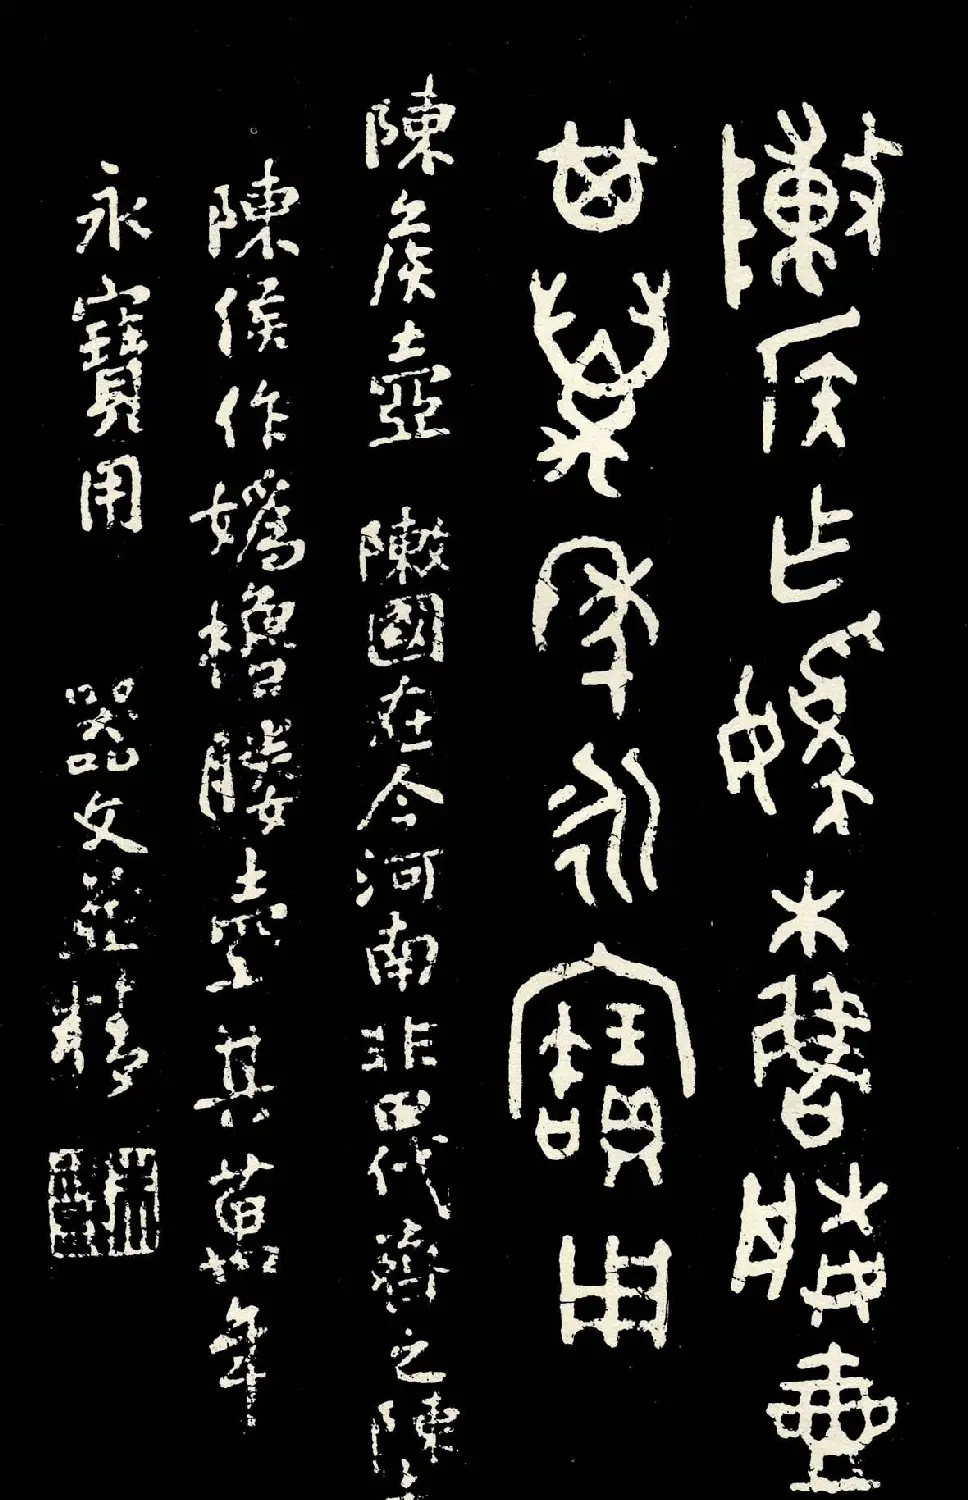 敶侯乍媯橹媵壺
其萬年永寶用
陳侯壺 敶國在今河南非田代齊之陳
陳侯作媯橹媵壺其萬年
永寶用 器文並精